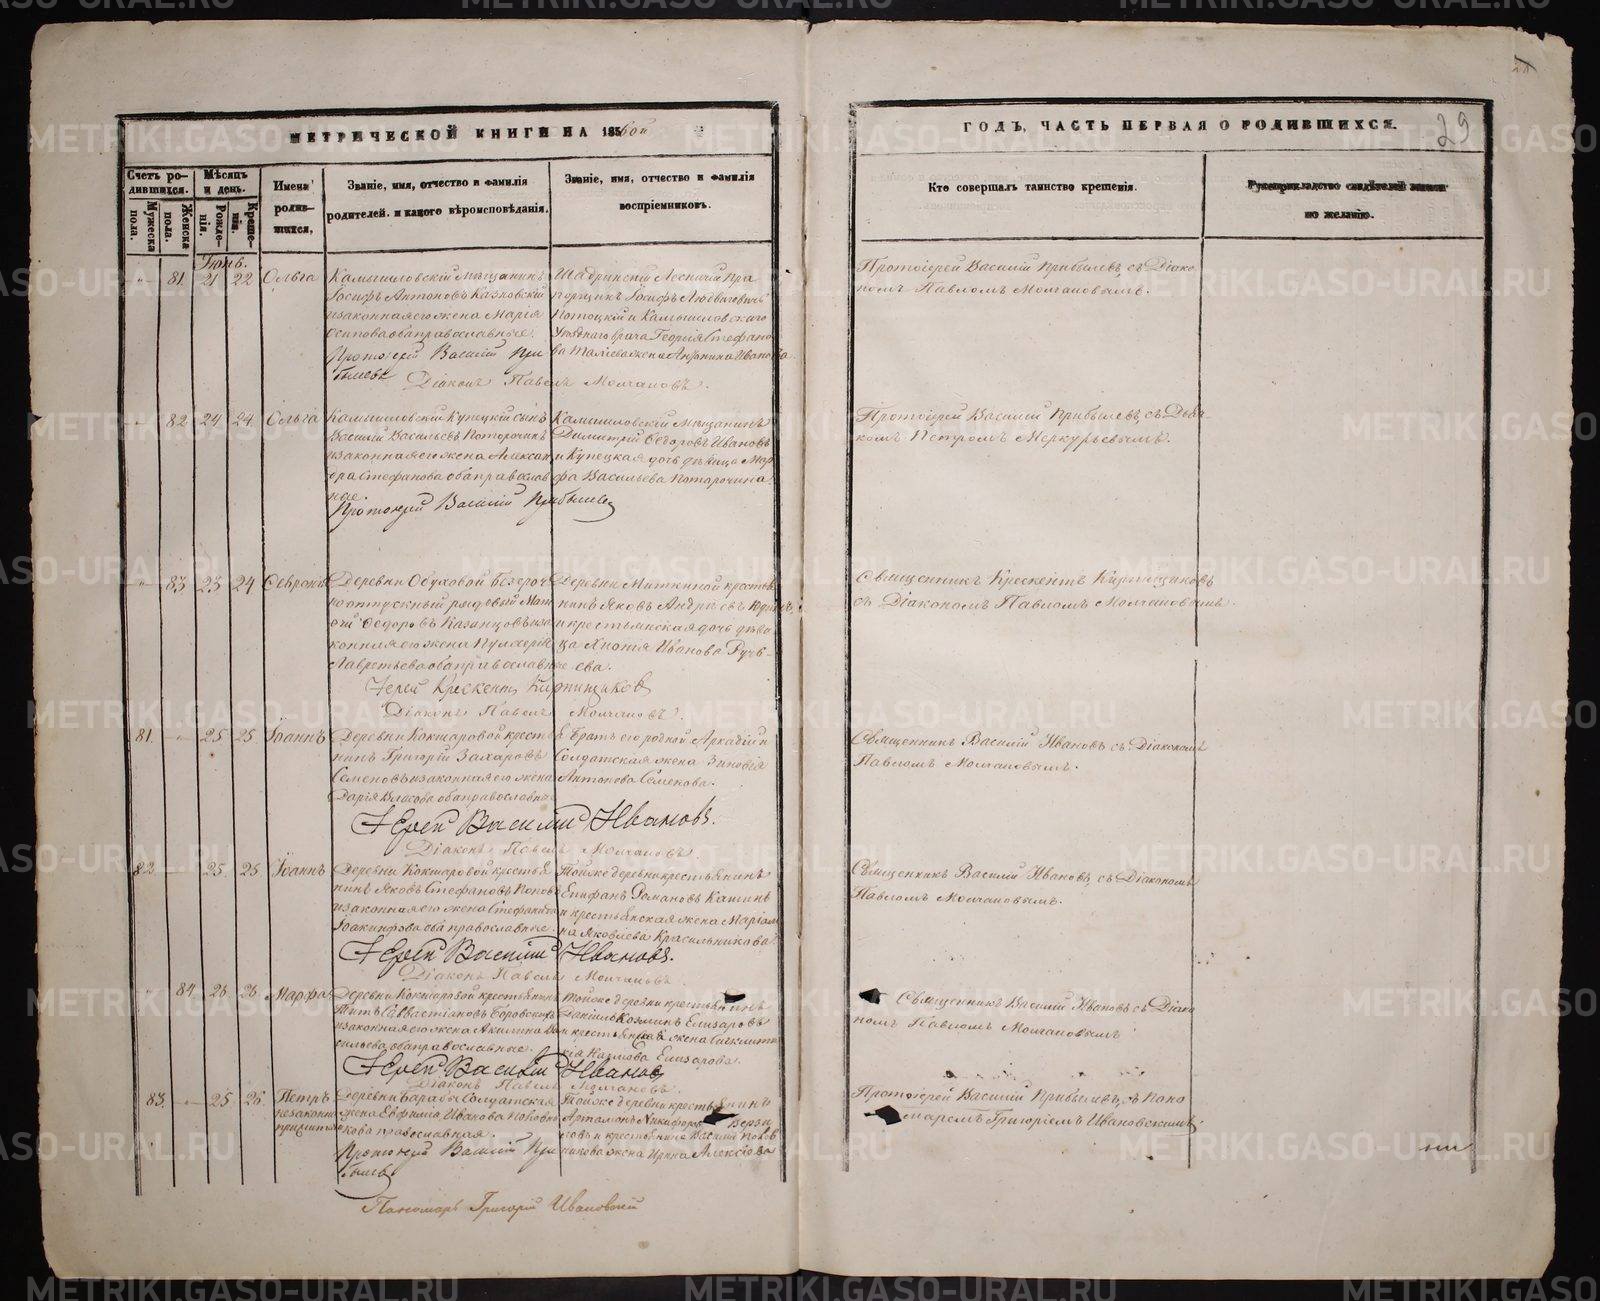 МЕТРИЧЕСКОЙ КНИГИ НА 185
ГОДЪ, ЧАСТЬ ПЕРВАЯ О РОДИВШИХСЯ.
29
Счетъ ро-
дившихся.
Мужеска
пола.
Женска
пола.
Мѣсяцъ
и день.
Рожде-
нія.
Креще-
нія.
Имена
родив-
шихся.
Званіе, имя, отчество и фамилія
родителей, и какого вѣроисповѣданія.
Званіе, имя, отчество и фамилія
воспріемниковъ.
Кто совершалъ таинство крещенія.
Рукоприкладство свидѣтелей записи
по желанію.
81 21 22 Ольга
Камышловскій Мѣщанинъ
Іосифъ Антоновъ
и законная его жена Марія
Осипова оба православные.
Протоіерей Василій При
былевъ
Діаконъ Павелъ Молчановъ.
Шадринскій Лесничій Пра
порщикъ Іосифъ Людвиговичъ
Потоцкій и Камышловскаго
Уѣзднаго врача Георгія Стефано
ва жена Антонина Иванова
Протоіерей Василій Прибылевъ съ Діако
номъ Павломъ Молчановымъ.
82 24 24 Ольга
Камышловскій Купецкій сынъ
Василій Васильевъ
и законная его жена Алексан
дра Стефанова оба православ
ные.
Протоіерей Василій Прибылевъ
Камышловскій Мѣщанинъ
Димитрій Ѳедоровъ Ивановъ
и Купецкая дочь дѣвица Мар
фа Васильева
Протоіерей Василій Прибылевъ, съ Діа
кономъ Петромъ Меркурьевымъ.
83 23 24
Деревни Обуховой Безсроч
но отпускный рядовый Мат
ѳей Ѳедоровъ Казанцовъ и за
конная его жена Пулхерія
Лаврентьева оба православные
Іерей Крискентъ Кирпищиковъ
Діаконъ Павелъ Молчановъ.
Яковъ Андреевъ
и крестьянская дочь дѣви
ца Иванова Ручь-
ева.
Священникъ Крискентъ Кирпищиковъ
съ Діакономъ Павломъ Молчановымъ.
81. 25 25 Іоаннъ
Деревни Кокшаровой крестья
нинъ Григорій Захаровъ
Семеновъ и законная его жена
Дарія Власова оба православные
Іерей Василій Ивановъ.
Діаконъ Павелъ Молчановъ.
Братъ его родной Аркадій и
Солдатская жена Зиновія
Антонова Семенова.
Священникъ Василій Ивановъ съ Діакономъ
Павломъ Молчановымъ.
82 25. 25 Іоаннъ
Деревни Кокшаровой крестья
нинъ Яковъ Стефановъ Поповъ
и законная его жена Стефанида
Іоакинфова оба православные.
Іерей Василій Ивановъ.
Діаконъ Павелъ Молчановъ
Тойже деревни крестьянинъ
Епифанъ Романовъ Кашинъ
и крестьянская жена Маріам
на Яковлева Красильникова.
Священникъ Василій Ивановъ, съ Діакономъ
Павломъ Молчановымъ.
84 26 26 Марфа
Деревни Кокшаровой крестьянинъ
Титъ Савастіановъ Боровскихъ
и законная его жена Акилина Ва
сильева, оба православные.
Іерей Василій Ивановъ
Діаконъ Павелъ Молчановъ.
Тойже деревни крестьянинъ
Даніилъ Козминъ Елизаровъ
и крестьянская жена
Елизарова.
Священникъ Василій Ивановъ съ Діако
номъ Павломъ Молчановымъ
83. 25 26. Петръ
незаконно
прижитый
Деревни Барабы Солдатская
жена Евфимія Иванова
православная.
Протоіерей Василій При
былевъ
Пономарь Григорій Ивановскій
Тойже деревни крестьянинъ
Артамонъ Никифоровъ
и крестьянина Василія
жена Ирина Алексіева
Протоіерей Василій Прибылевъ, съ Поно
маремъ Григоріемъ Ивановскимъ.
METRIKI.GASO-URAL.RU